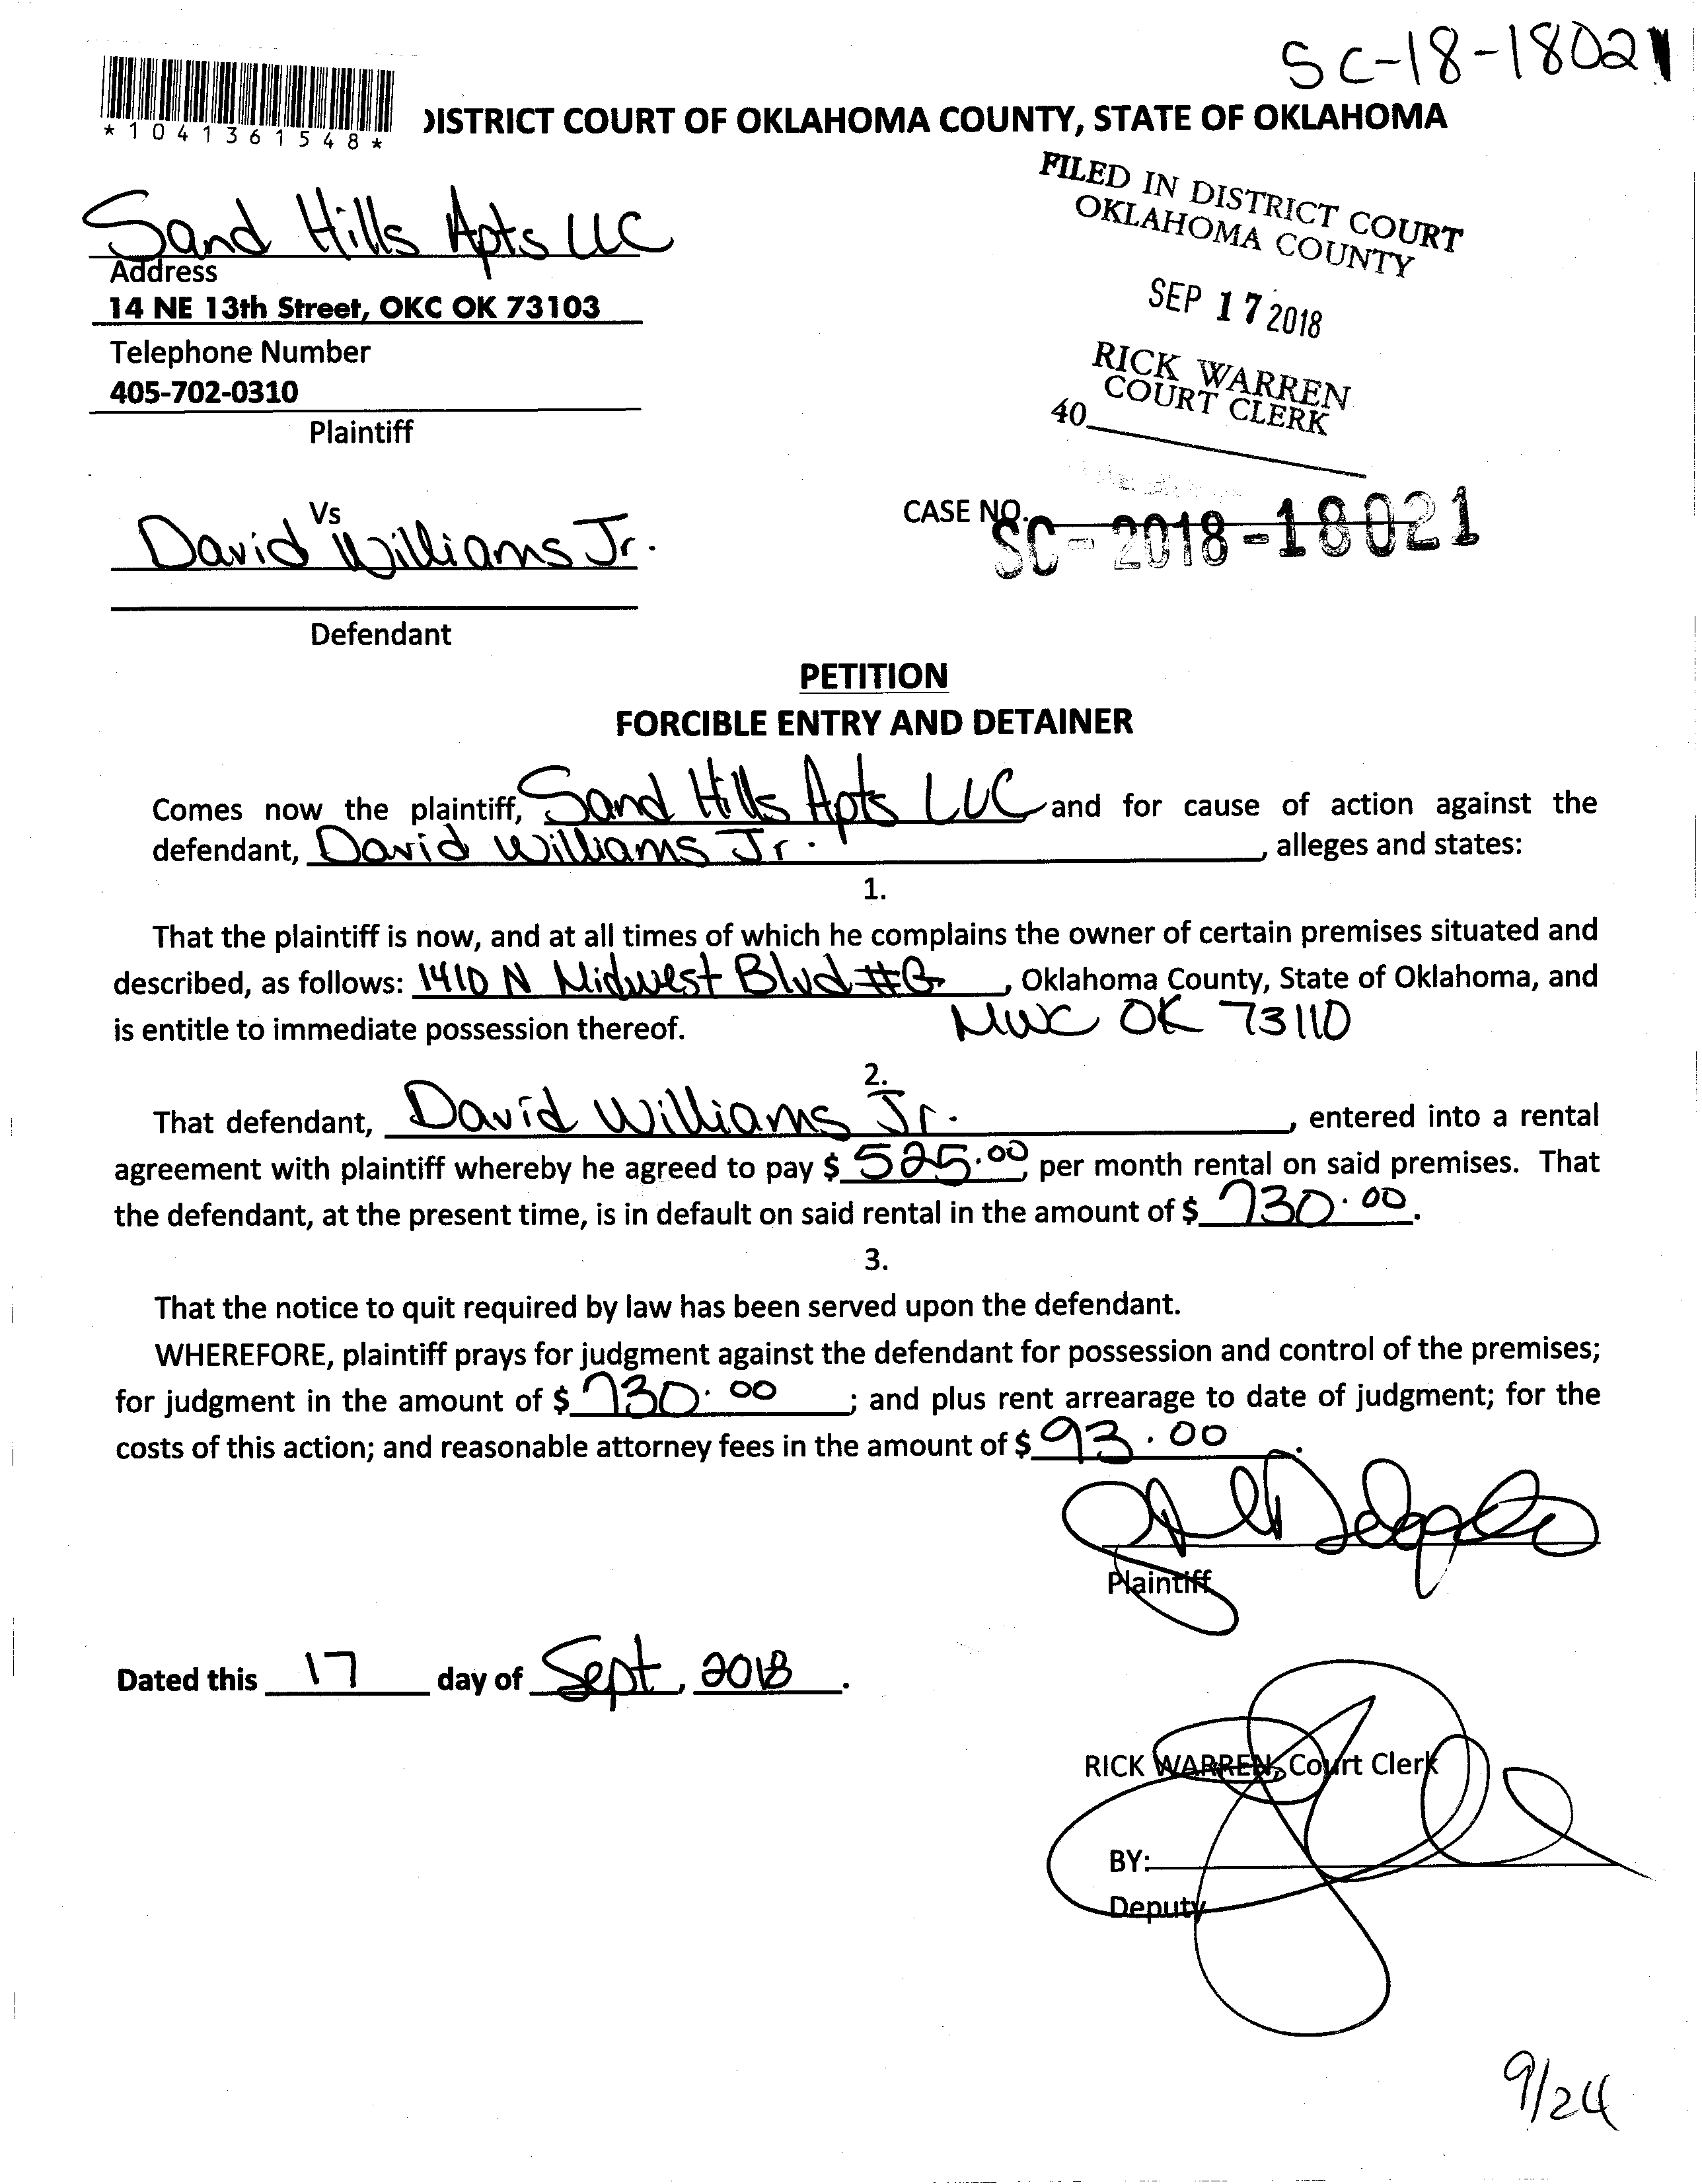 SC-18-18021
*1041361548*
DISTRICT COURT OF OKLAHOMA COUNTY, STATE OF OKLAHOMA
FILED IN DISTRICT COURT
OKLAHOMA COUNTY
SEP 17 2018
RICK WARREN
COURT CLERK
40
Sand Hills Apts LLC
Address
14 NE 13th Street, OKC OK 73103
Telephone Number
405-702-0310
Plaintiff
Vs
David Williams Jr.
Defendant
CASE NO. SC-2018-18021
PETITION
FORCIBLE ENTRY AND DETAINER
Comes now the plaintiff, Sand Hills Apts LLC and for cause of action against the
defendant, David Williams Jr. , alleges and states:
1.
That the plaintiff is now, and at all times of which he complains the owner of certain premises situated and
described, as follows: 1410 N Midwest Blvd #G , Oklahoma County, State of Oklahoma, and
is entitle to immediate possession thereof. MWC OK 73110
2.
That defendant, David Williams Jr. , entered into a rental
agreement with plaintiff whereby he agreed to pay $ 525.00, per month rental on said premises. That
the defendant, at the present time, is in default on said rental in the amount of $ 730.00.
3.
That the notice to quit required by law has been served upon the defendant.
WHEREFORE, plaintiff prays for judgment against the defendant for possession and control of the premises;
for judgment in the amount of $ 730.00 ; and plus rent arrearage to date of judgment; for the
costs of this action; and reasonable attorney fees in the amount of $ 93.00.
Plaintiff
Dated this 17 day of Sept, 2018.
RICK WARREN, Court Clerk
BY:
Deputy
9/24